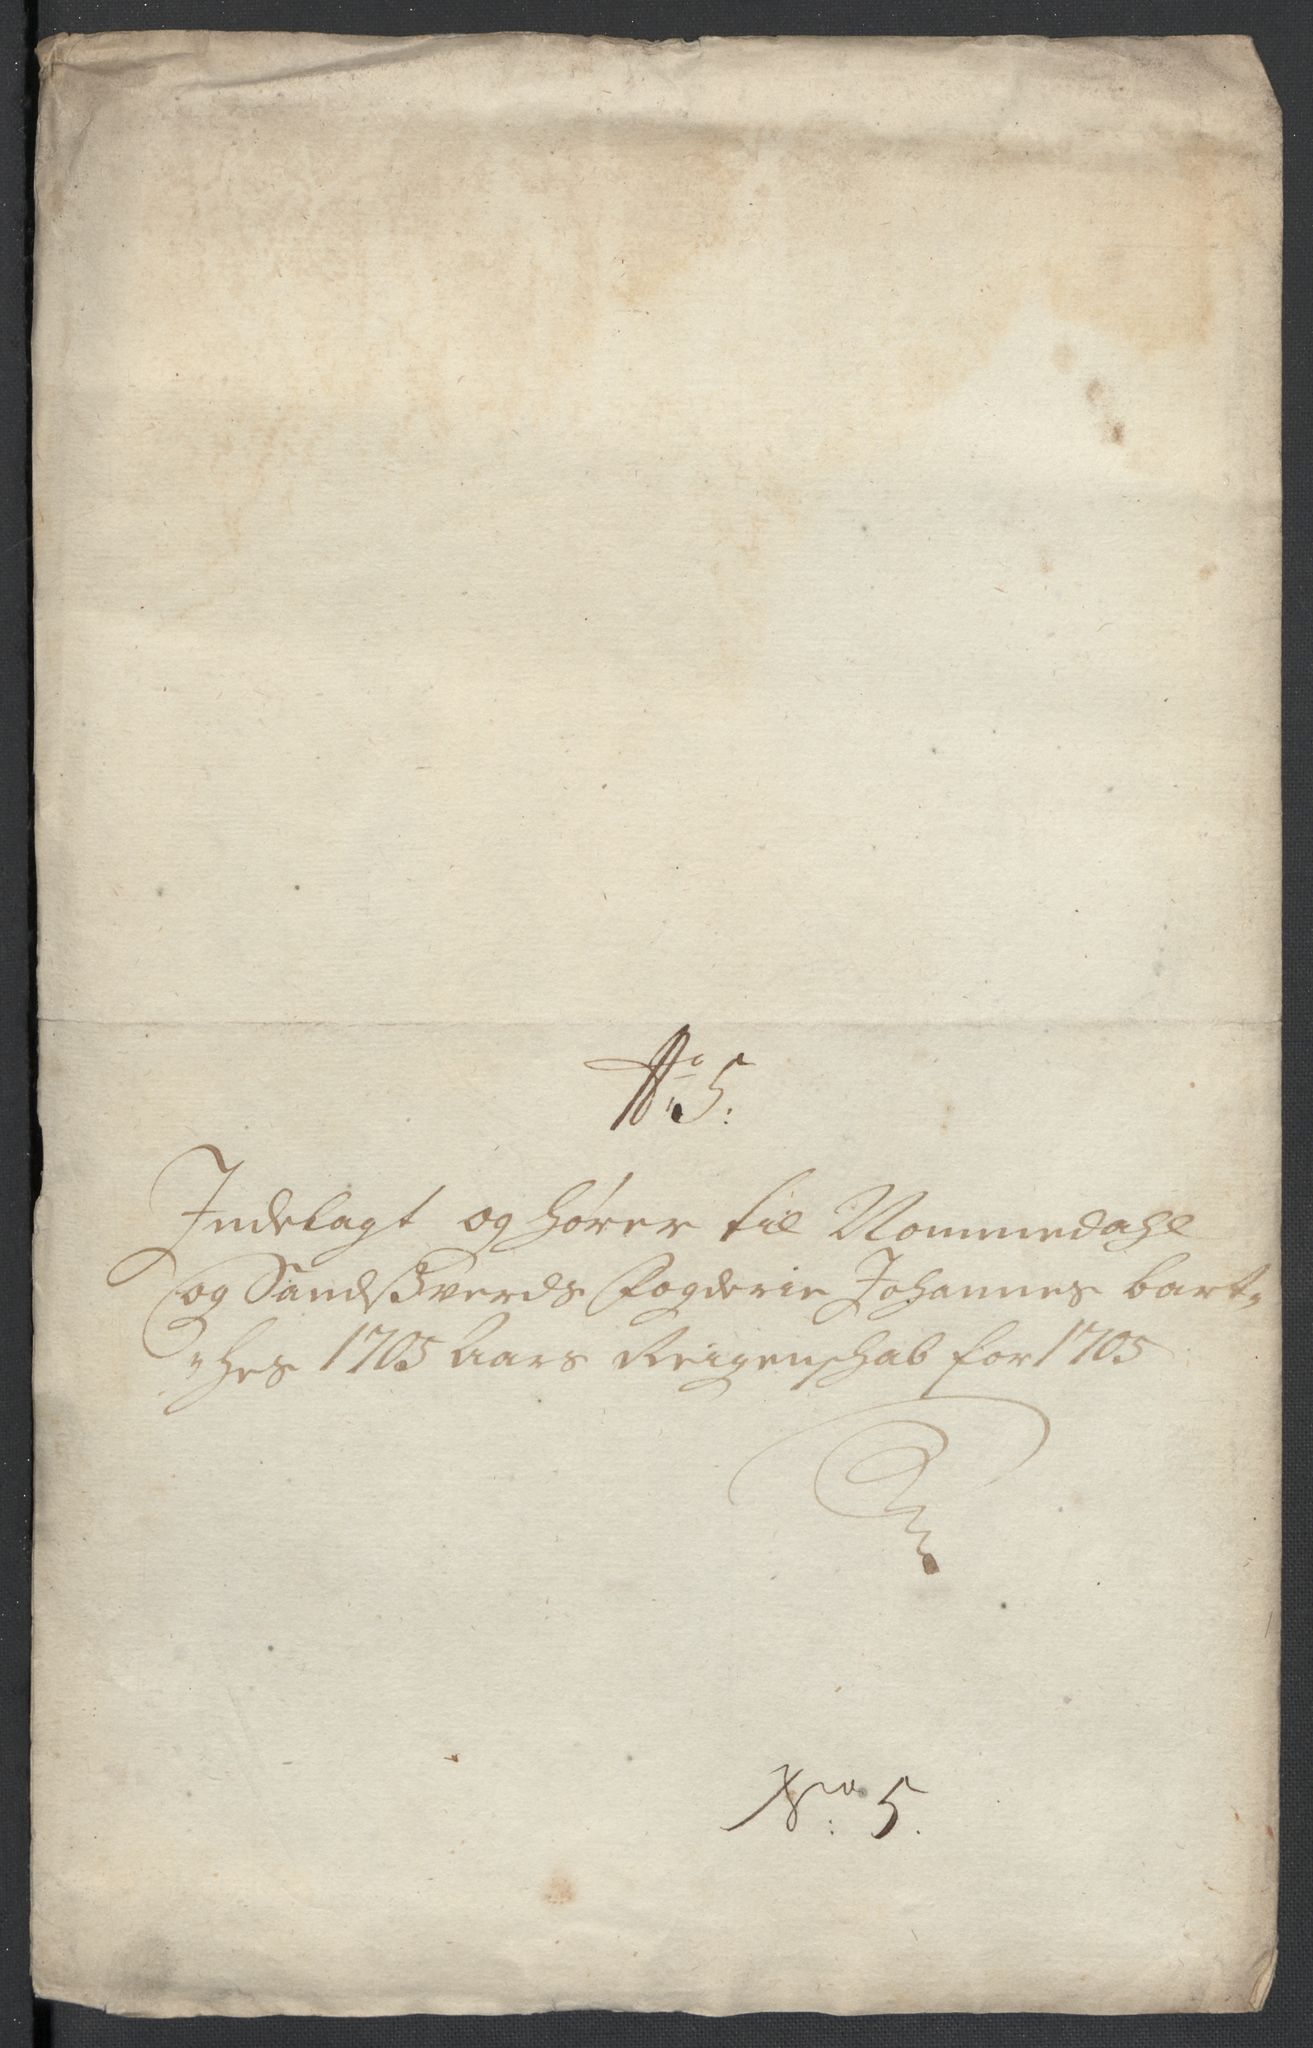 No 5:
Indelagt og hører til Nommedahl
og Sandsverds fogderie Johannes bart-
"hes 1705 Aars Reigenschab for 1705
No: 5.